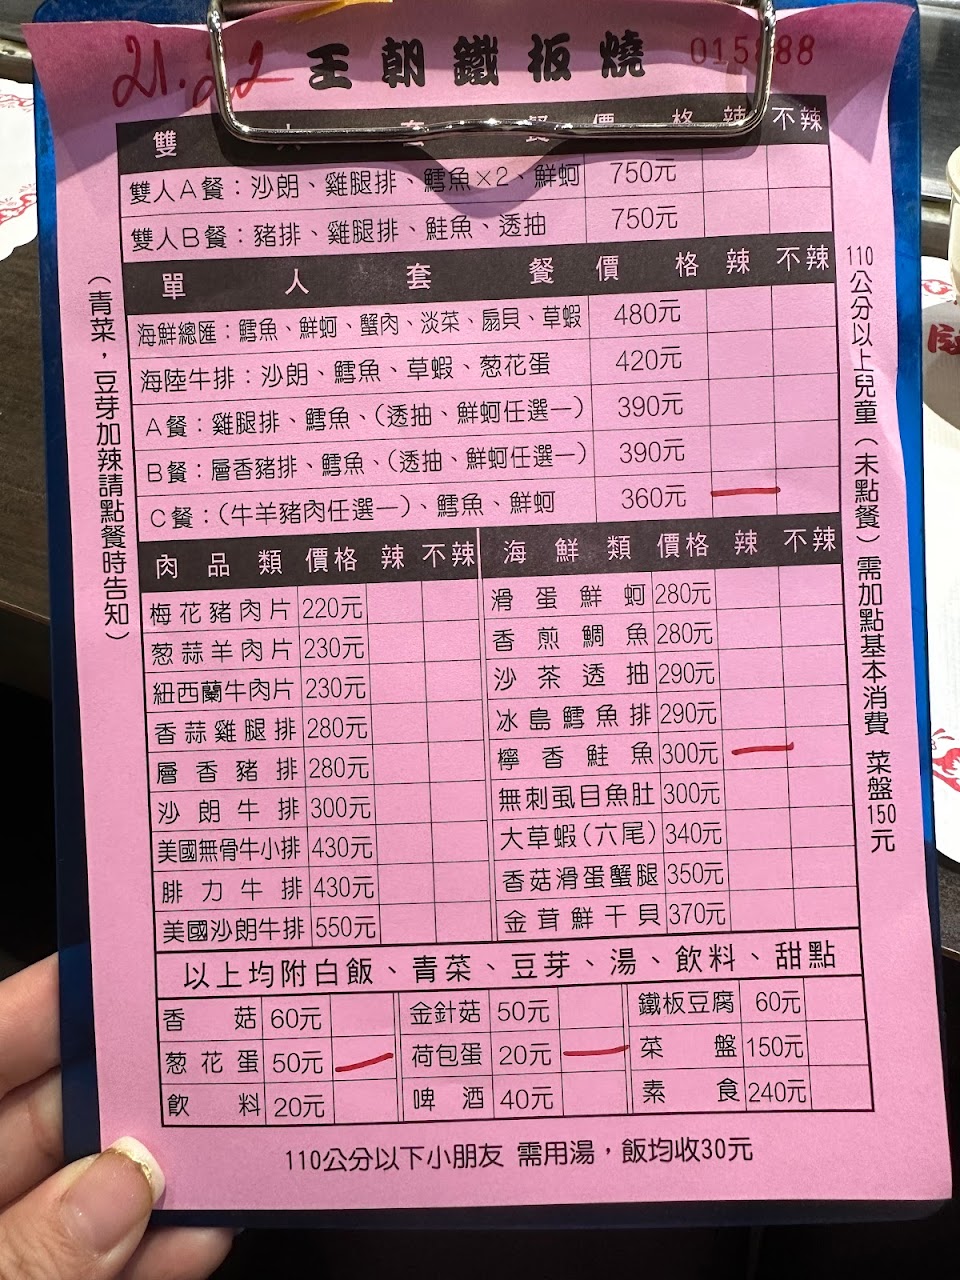 21.22 王朝鐵板燒
雙 套 餐 價 格 辣 不辣
雙人A餐：沙朗、雞腿排、鱈魚×2、鮮蚵 750元
雙人B餐：豬排、雞腿排、鮭魚、透抽 750元
單 人 套 餐 價 格 辣 不辣
海鮮總匯：鱈魚、鮮蚵、蟹肉、淡菜、扇貝、草蝦 480元
海陸牛排：沙朗、鱈魚、草蝦、葱花蛋 420元
A餐：雞腿排、鱈魚、(透抽、鮮蚵任選一) 390元
B餐：層香豬排、鱈魚、(透抽、鮮蚵任選一) 390元
C餐：(牛羊豬肉任選一)、鱈魚、鮮蚵 360元
肉品類 價格 辣 不辣 海鮮類 價格 辣 不辣
梅花豬肉片 220元 滑蛋鮮蚵 280元
葱蒜羊肉片 230元 香煎鯛魚 280元
紐西蘭牛肉片 230元 沙茶透抽 290元
香蒜雞腿排 280元 冰島鱈魚排 290元
層香豬排 280元 檸香鮭魚 300元
沙朗牛排 300元 無刺虱目魚肚 300元
美國無骨牛小排 430元 大草蝦(六尾) 340元
腓力牛排 430元 香菇滑蛋蟹腿 350元
美國沙朗牛排 550元 金茸鮮干貝 370元
以上均附白飯、青菜、豆芽、湯、飲料、甜點
香菇 60元 金針菇 50元 鐵板豆腐 60元
葱花蛋 50元 荷包蛋 20元 菜盤 150元
飲料 20元 啤酒 40元 素食 240元
110公分以下小朋友 需用湯，飯均收30元
(青菜，豆芽加辣請點餐時告知)
110公分以上兒童(未點餐)需加點基本消費 菜盤150元